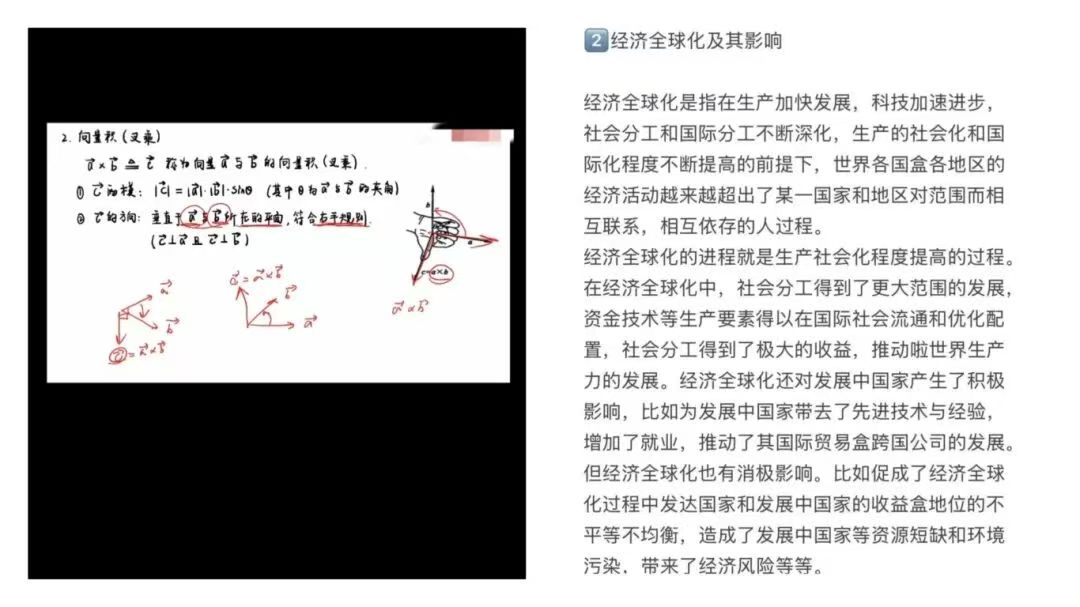 2. 向量积(叉乘)
a⃗ × b⃗ ≙ c⃗ 称为向量 a⃗ 与 b⃗ 的向量积(叉乘).
① c⃗ 的模: |c⃗| = |a⃗|·|b⃗|·sinθ (其中θ为 a⃗ 与 b⃗ 的夹角)
② c⃗ 的方向: 垂直于 a⃗ 与 b⃗ 所在的平面, 符合右手规则.
(c⃗⊥a⃗ 且 c⃗⊥b⃗)
b
a
c=a×b
a⃗×b⃗
a⃗
b⃗
c⃗=a⃗×b⃗
c⃗=a⃗×b⃗
b⃗
a⃗
2 经济全球化及其影响
经济全球化是指在生产加快发展，科技加速进步，
社会分工和国际分工不断深化，生产的社会化和国
际化程度不断提高的前提下，世界各国盒各地区的
经济活动越来越超出了某一国家和地区对范围而相
互联系，相互依存的人过程。
经济全球化的进程就是生产社会化程度提高的过程。
在经济全球化中，社会分工得到了更大范围的发展，
资金技术等生产要素得以在国际社会流通和优化配
置，社会分工得到了极大的收益，推动啦世界生产
力的发展。经济全球化还对发展中国家产生了积极
影响，比如为发展中国家带去了先进技术与经验，
增加了就业，推动了其国际贸易盒跨国公司的发展。
但经济全球化也有消极影响。比如促成了经济全球
化过程中发达国家和发展中国家的收益盒地位的不
平等不均衡，造成了发展中国家等资源短缺和环境
污染，带来了经济风险等等。